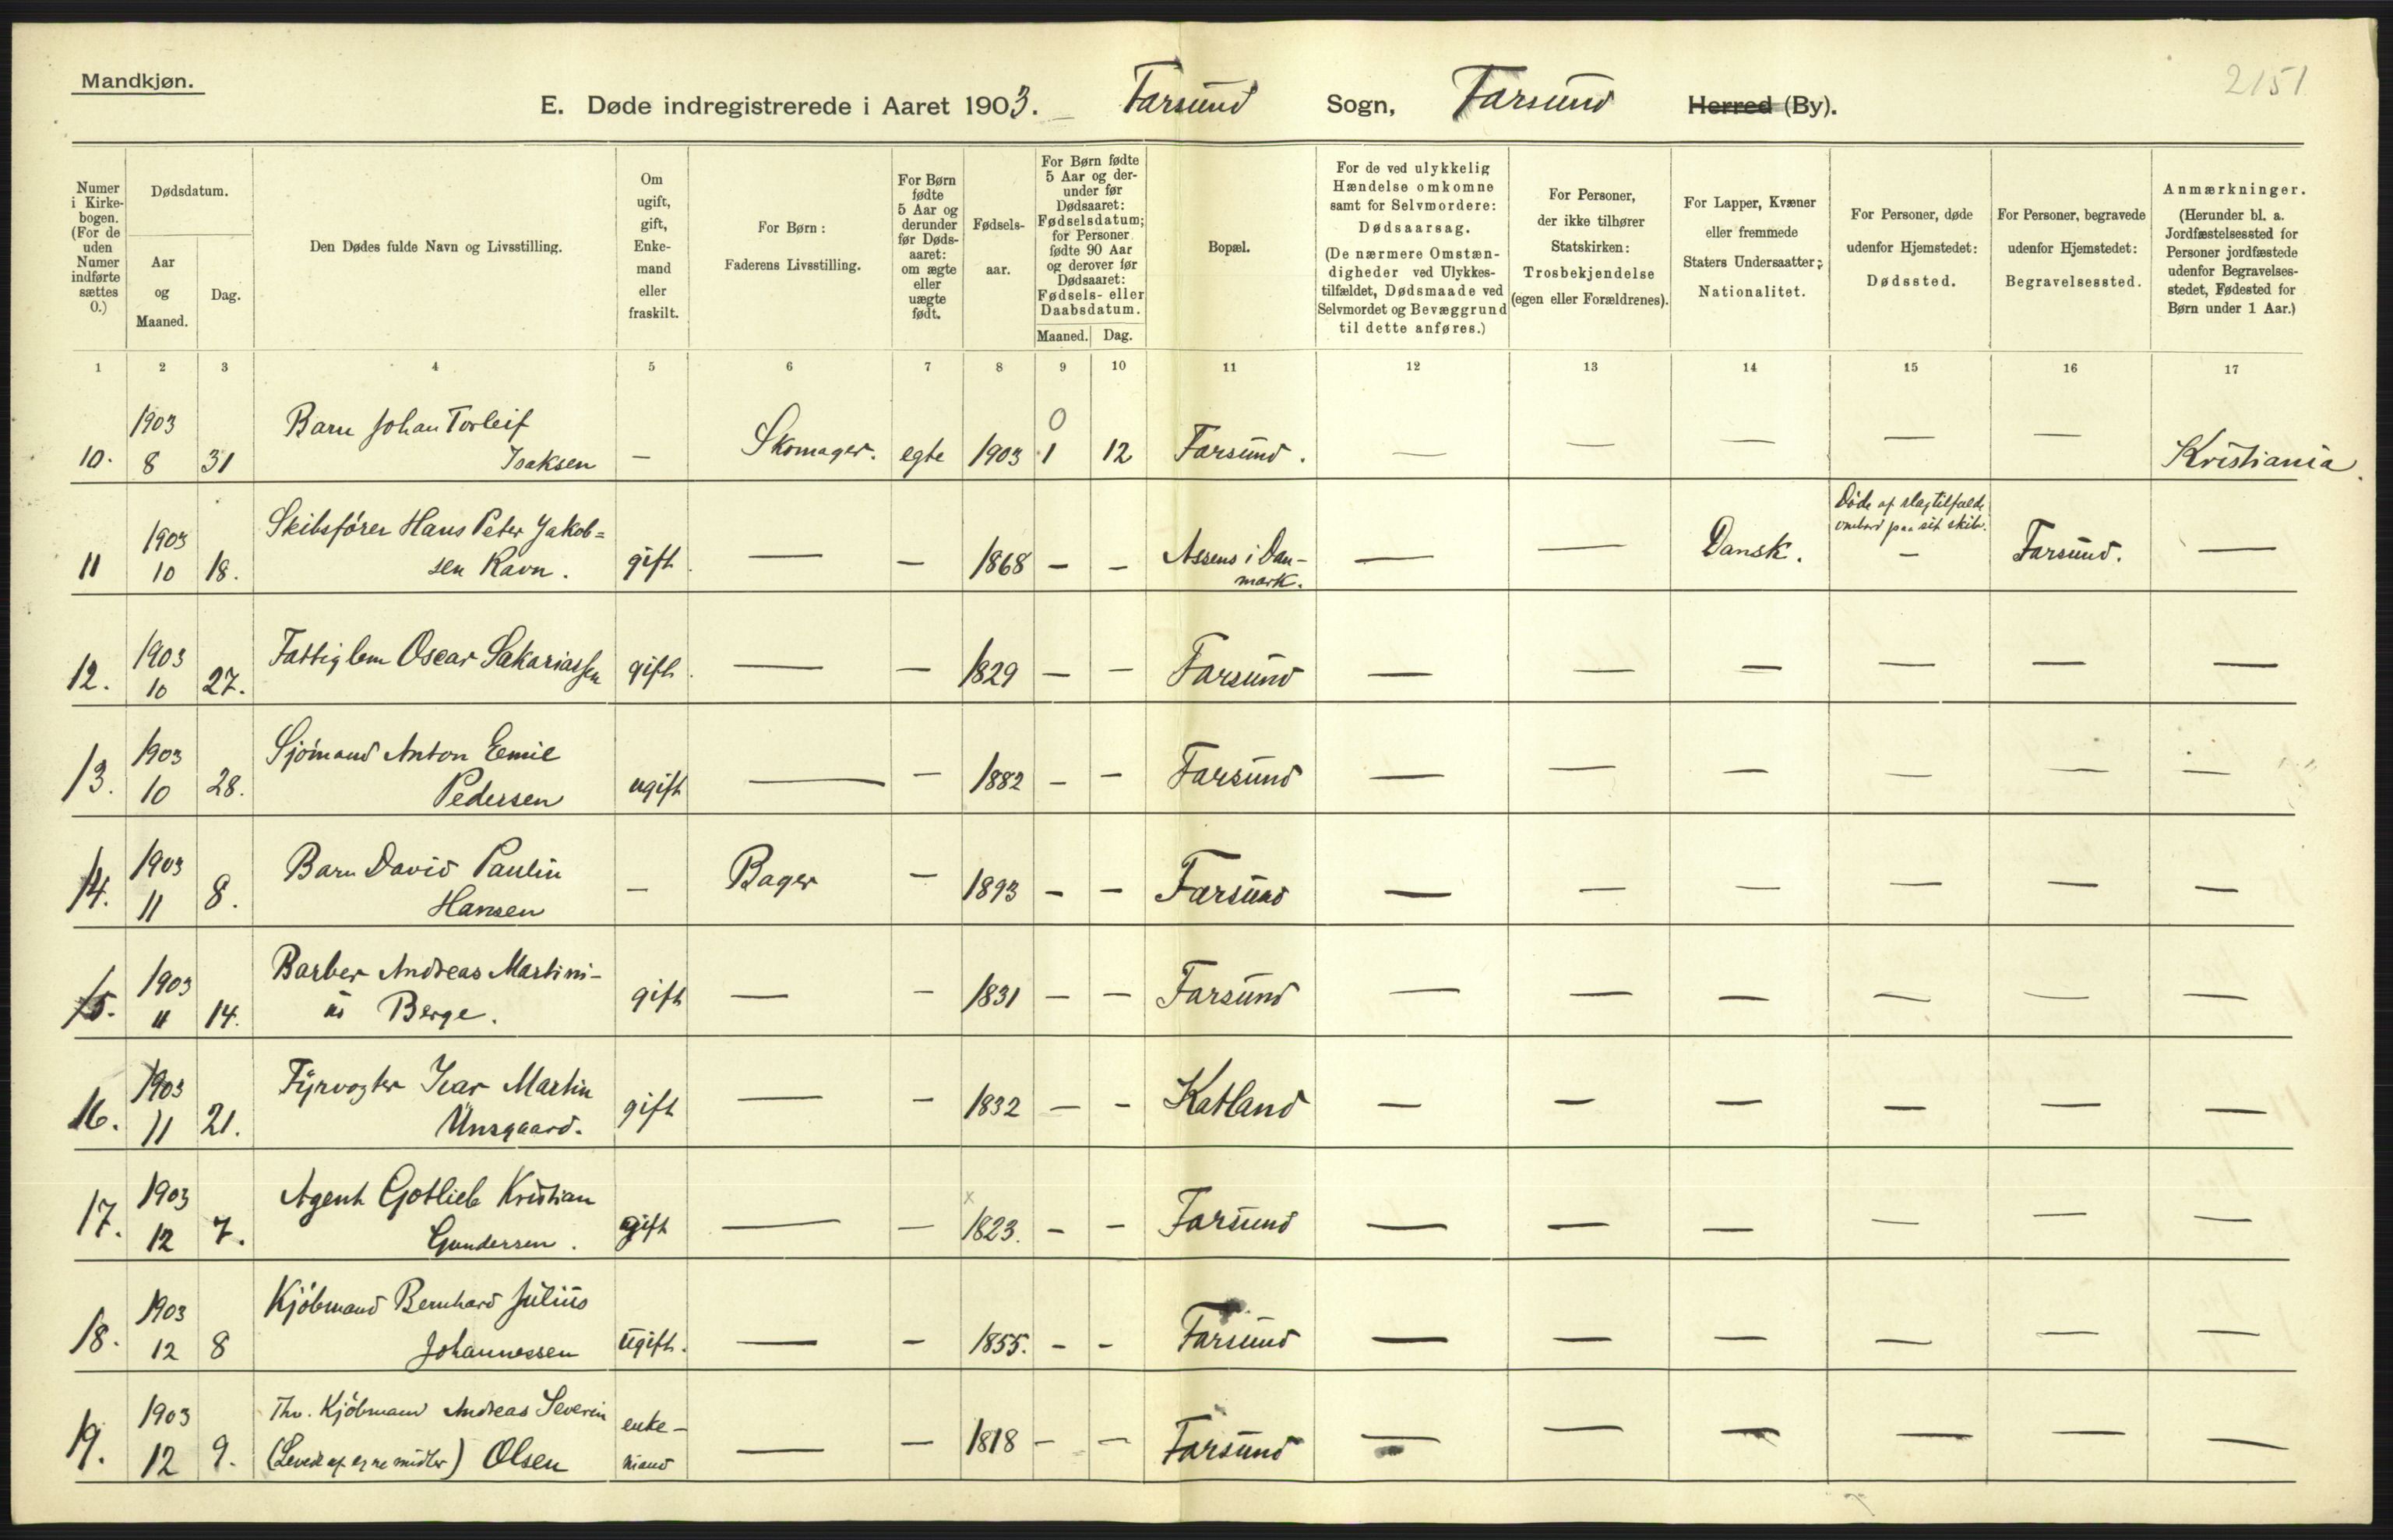 Mandkjøn.
2151
E. Døde indregistrerede i Aaret 1903. Farsund Sogn, Farsund Herred (By).
Numer i Kirke-bogen. (For de uden Numer indførte sættes 0.)
Dødsdatum.
Aar og Maaned.
Dag.
Den Dødes fulde Navn og Livsstilling.
Om ugift, gift, Enke-mand eller fraskilt.
For Børn: Faderens Livsstilling.
For Børn fødte 5 Aar og derunder før Døds-aaret: om ægte eller uægte født.
Fødsels-aar.
For Børn fødte 5 Aar og der-under før Dødsaaret: Fødselsdatum; for Personer fødte 90 Aar og derover før Dødsaaret: Fødsels- eller Daabsdatum.
Maaned. Dag.
Bopæl.
For de ved ulykkelig Hændelse omkomne samt for Selvmordere: Dødsaarsag. (De nærmere Omstæn-digheder ved Ulykkes-tilfældet, Dødsmaade ved Selvmordet og Bevæggrund til dette anføres.)
For Personer, der ikke tilhører Statskirken: Trosbekjendelse (egen eller Forældrenes).
For Lapper, Kvæner eller fremmede Staters Undersaatter: Nationalitet.
For Personer, døde udenfor Hjemstedet: Dødssted.
For Personer, begravede udenfor Hjemstedet: Begravelsessted.
Anmærkninger. (Herunder bl. a. Jordfæstelsessted for Personer jordfæstede udenfor Begravelses-stedet, Fødested for Børn under 1 Aar.)
1 2 3 4 5 6 7 8 9 10 11 12 13 14 15 16 17
1903 Barn Johan Torleif 0
10. 8 31 Isaksen — Skomager. egte 1903 1 12 Farsund. — — — — — Kristiania.
1903 Skibsfører Hans Peter Jakob= Døde af slagtilfælde ombord paa sit skib.
11 10 18. sen Ravn. gift. — — 1868 — — Assens i Dan-mark. — — Dansk. — Farsund. —
1903 Fattiglem Oscar Sakariassen
12. 10 27. gift. — — 1829 — — Farsund — — — — — —
1903 Sjømand Anton Emil
13. 10 28. Pedersen ugift — — 1882 — — Farsund — — — — — —
1903 Barn David Paulin
14. 11 8. Hansen — Bager — 1893 — — Farsund — — — — — —
1903 Barber Andreas Martini-
15. 11 14. us Berge. gift — — 1831 — — Farsund — — — — — —
1903 Fyrvogter Ivar Martin
16. 11 21. Unsgaard. gift — — 1832 — — Katland — — — — — —
1903 Agent Gotlieb Kristian x
17. 12 7. Gundersen. gift — — 1823. — — Farsund — — — — — —
1903 Kjøbmand Bernhard Julius
18. 12 8 Johannessen ugift. — — 1855. — — Farsund — — — — — —
1903 Thv. Kjøbmand Andreas Severin enke-
19. 12 9. (Leved af egne midler) Olsen mand — — 1818 — — Farsund — — — — — —